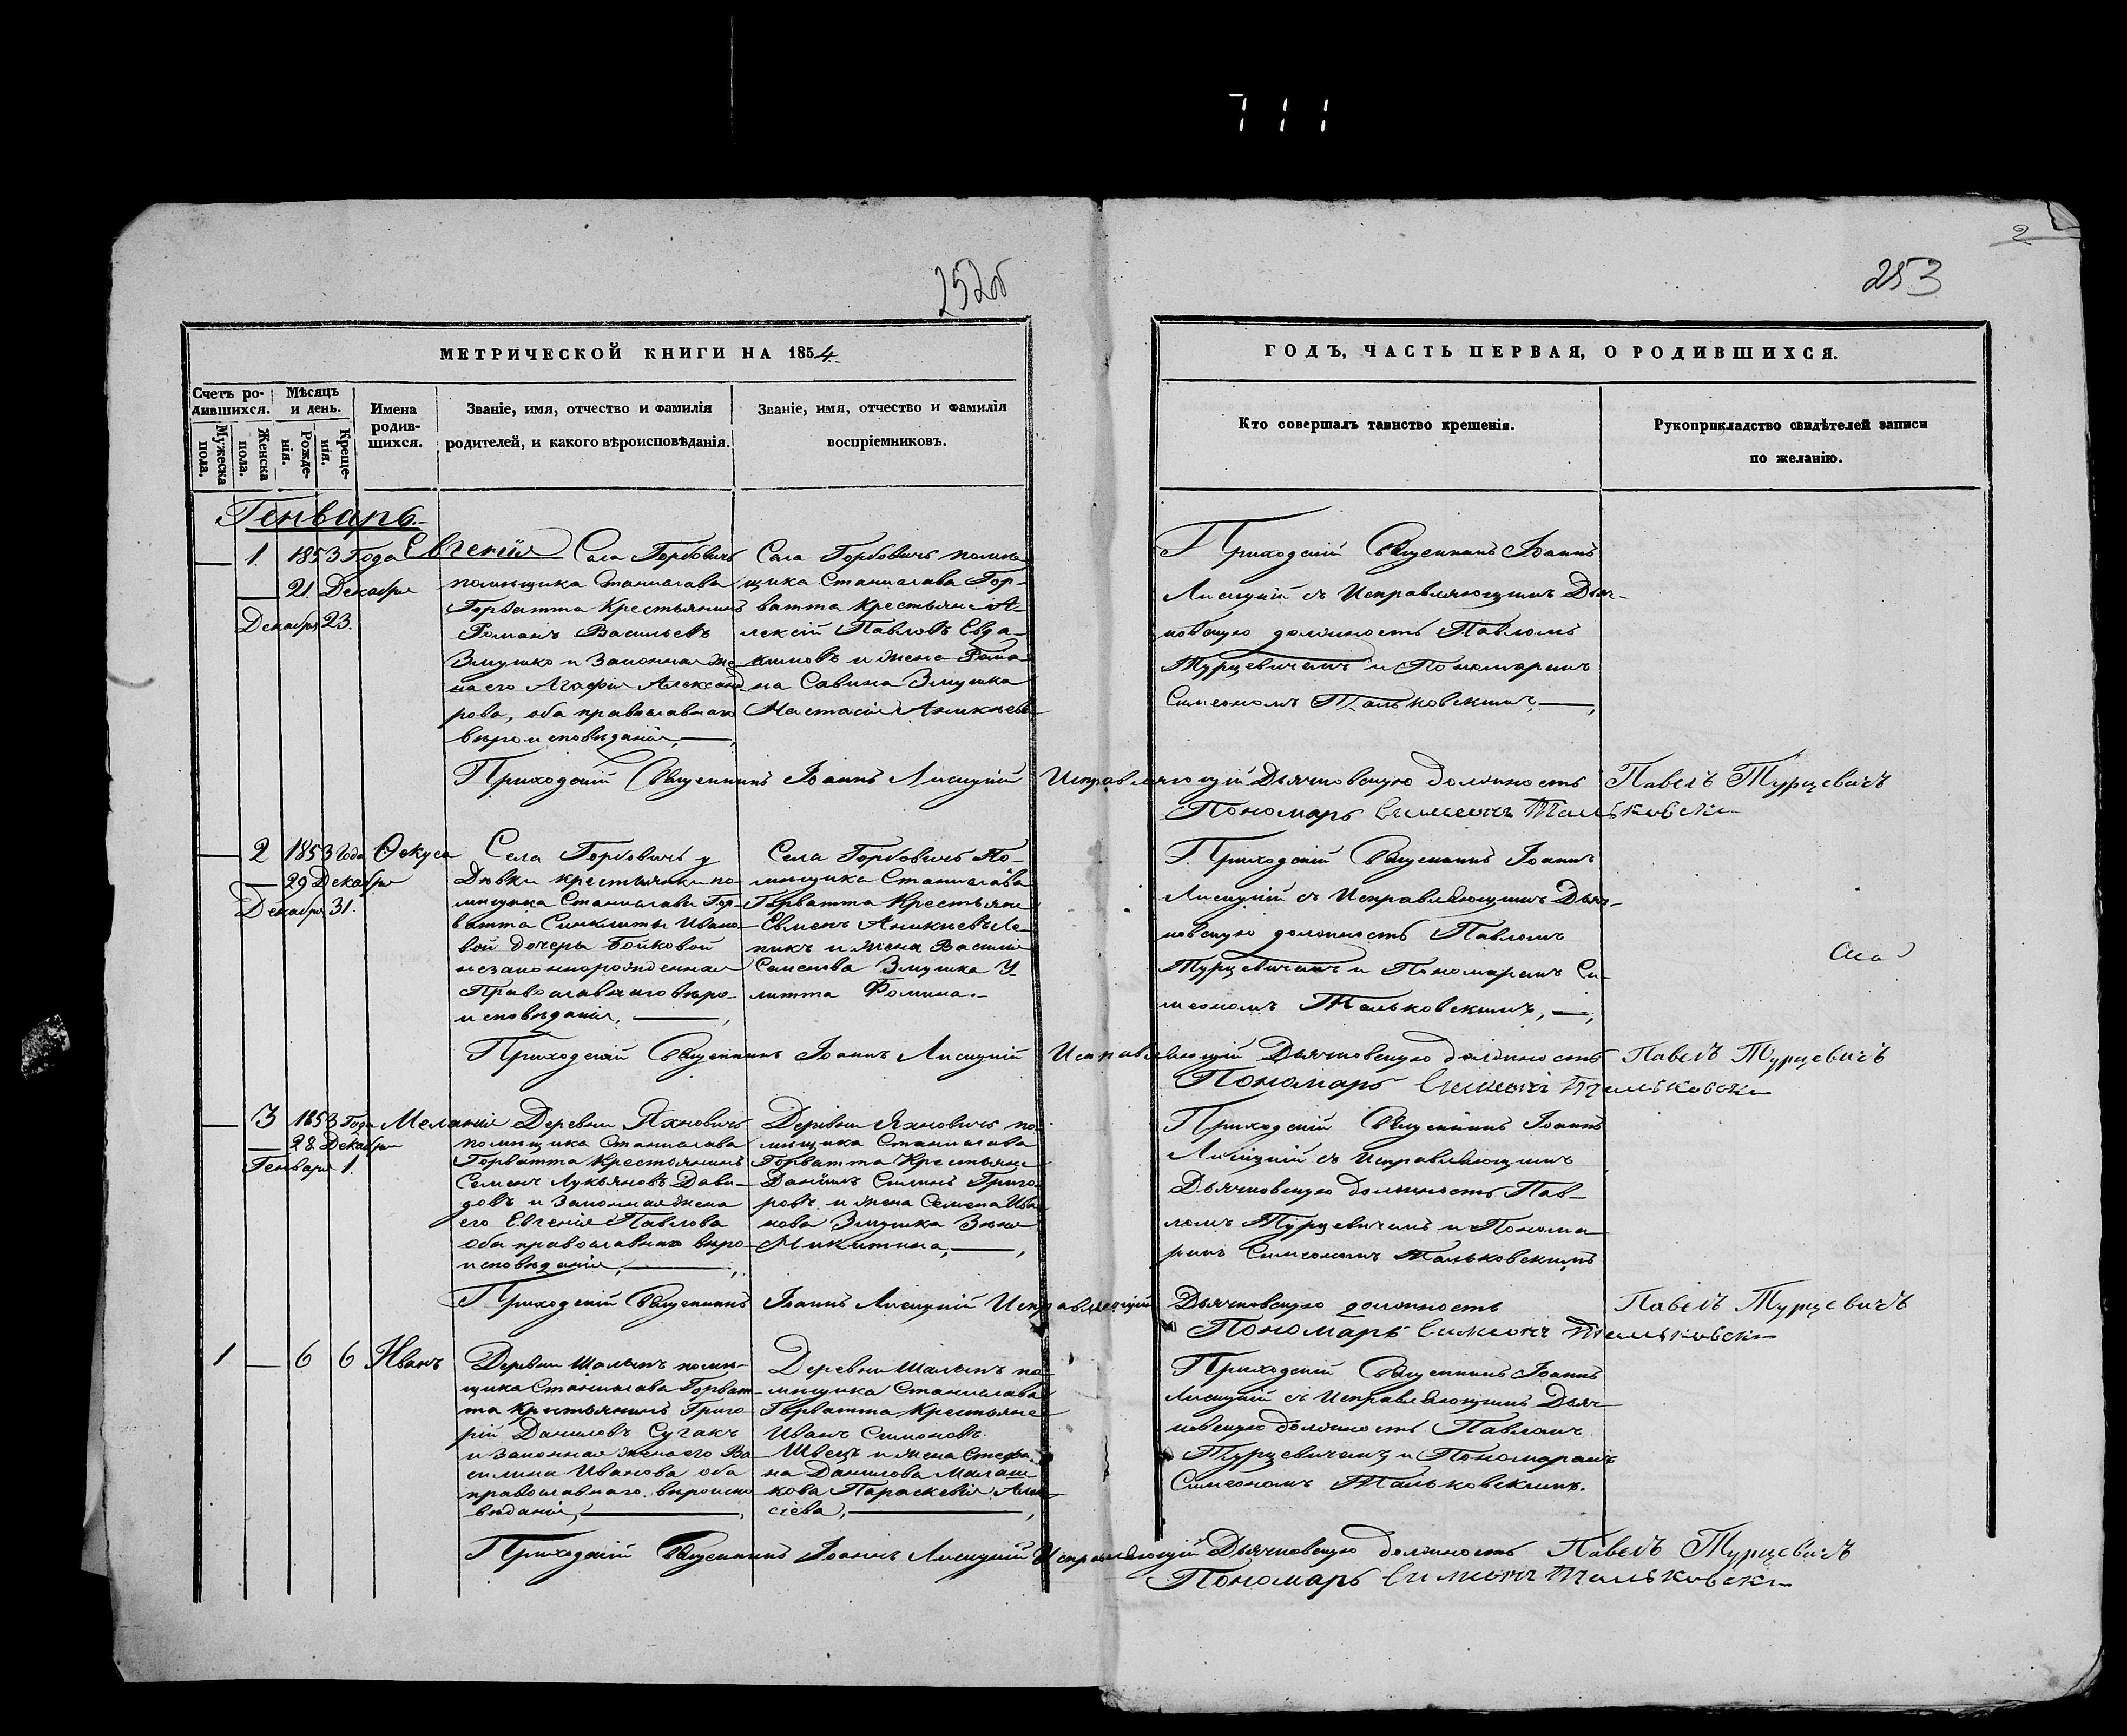 711
2
252об
253
МЕТРИЧЕСКОЙ КНИГИ НА 1854.
ГОДЪ, ЧАСТЬ ПЕРВАЯ, О РОДИВШИХСЯ.
Счетъ ро-
дившихся.
Мужеска
пола.
Женска
пола.
Мѣсяцъ
и день.
Рожде-
нія.
Креще-
нія.
Имена
родив-
шихся.
Званіе, имя, отчество и фамилія
родителей, и какого вѣроисповѣданія.
Званіе, имя, отчество и фамилія
воспріемниковъ.
Кто совершалъ таинство крещенія.
Рукоприкладство свидѣтелей записи
по желанію.
Генварь.
1. 1853 Года
21. Декабря
Декабря 23.
Евгенія
Села Горбовичь
помѣщика Станислава
Горватта Крестьянинъ
Романъ Васильевъ
Змушко и Законная же-
на его Агафія Александ
рова, оба православнаго
вѣроисповѣданія,
Села Горбовичь помѣ
щика Станислава Гор-
ватта крестьяне А-
лексій Павловъ Евда-
кимовъ и жена Рома
на Савина Змушка
Настасія Аникѣева
Приходскій Священникъ Іоаннъ
Лисицкій съ Исправляющимъ Дьяч-
ковскую должность Павломъ
Турцевичемъ и Пономаремъ
Симеономъ Тальковскимъ,
Приходскій Священникъ Іоаннъ Лисицкій Исправляющій Дьячковскую должность Павелъ Турцевичъ
Пономарь Симеонъ Тальковски
2 1853 Года
29 Декабря
Декабря 31.
Ѳекуса
Села Горбовичь у
Дѣвки крестьянки по-
мѣщика Станислава Гор-
ватта Синклиты Ивано-
вой дочери Бойковой
незаконнорожденная
Православнаго вѣро-
исповѣданія,
Села Горбовичь По-
мѣщика Станислава
Горватта Крестьяне
Евменъ Аникѣевъ Ле-
никъ и жена Василія
Семенова Змушка У-
литта Фомина.
Приходскій Священникъ Іоаннъ
Лисицкій съ Исправляющимъ Дьяч-
ковскую должность Павломъ
Турцевичемъ и Пономаремъ Си-
меономъ Тальковскимъ,
Приходскій Священникъ Іоаннъ Лисицкій Исправляющій Дьячковскую должность Павелъ Турцевичъ
Пономарь Симеонъ Тальковски
3 1853 Года
28 Декабря
Генваря 1.
Меланія
Деревни Яхновичь
помѣщика Станислава
Горватта Крестьянинъ
Семенъ Лукьяновъ Дави-
довъ и Законная жена
его Евгенія Павлова
Оба православнаго вѣро-
исповѣданія,
Деревни Яхновичь по-
мѣщика Станислава
Горватта Крестьяне
Даніилъ Силинъ Григо
ровъ и жена Семена Ива
нова Змушка
Микитина,
Приходскій Священникъ Іоаннъ
Лисицкій съ Исправляющимъ
Дьячковскую должность Пав-
ломъ Турцевичемъ и Понома-
ремъ Симеономъ Тальковскимъ
Приходскій Священникъ Іоаннъ Лисицкій Исправляющій Дьячковскую должность Павелъ Турцевичъ
Пономарь Симеонъ Тальковски
1 6 6 Иванъ
Деревни Шалыпъ помѣ-
щика Станислава Горват-
та Крестьянинъ Григо
рій Даниловъ Сугакъ
и Законная жена его Ва
силина Иванова оба
православнаго вѣроиспо
вѣданія,
Деревни Шалыпъ по-
мѣщика Станислава
Горватта Крестьяне
Иванъ Симоновъ
Швецъ и жена Стефа
на Данилова Малаш
кова Параскевія Алек
сіева,
Приходскій Священникъ Іоаннъ
Лисицкій съ Исправляющимъ Дьяч-
ковскую должность Павломъ
Турцевичемъ и Пономаремъ
Симеономъ Тальковскимъ.
Приходскій Священникъ Іоаннъ Лисицкій Исправляющій Дьячковскую должность Павелъ Турцевичъ
Пономарь Симеонъ Тальковски